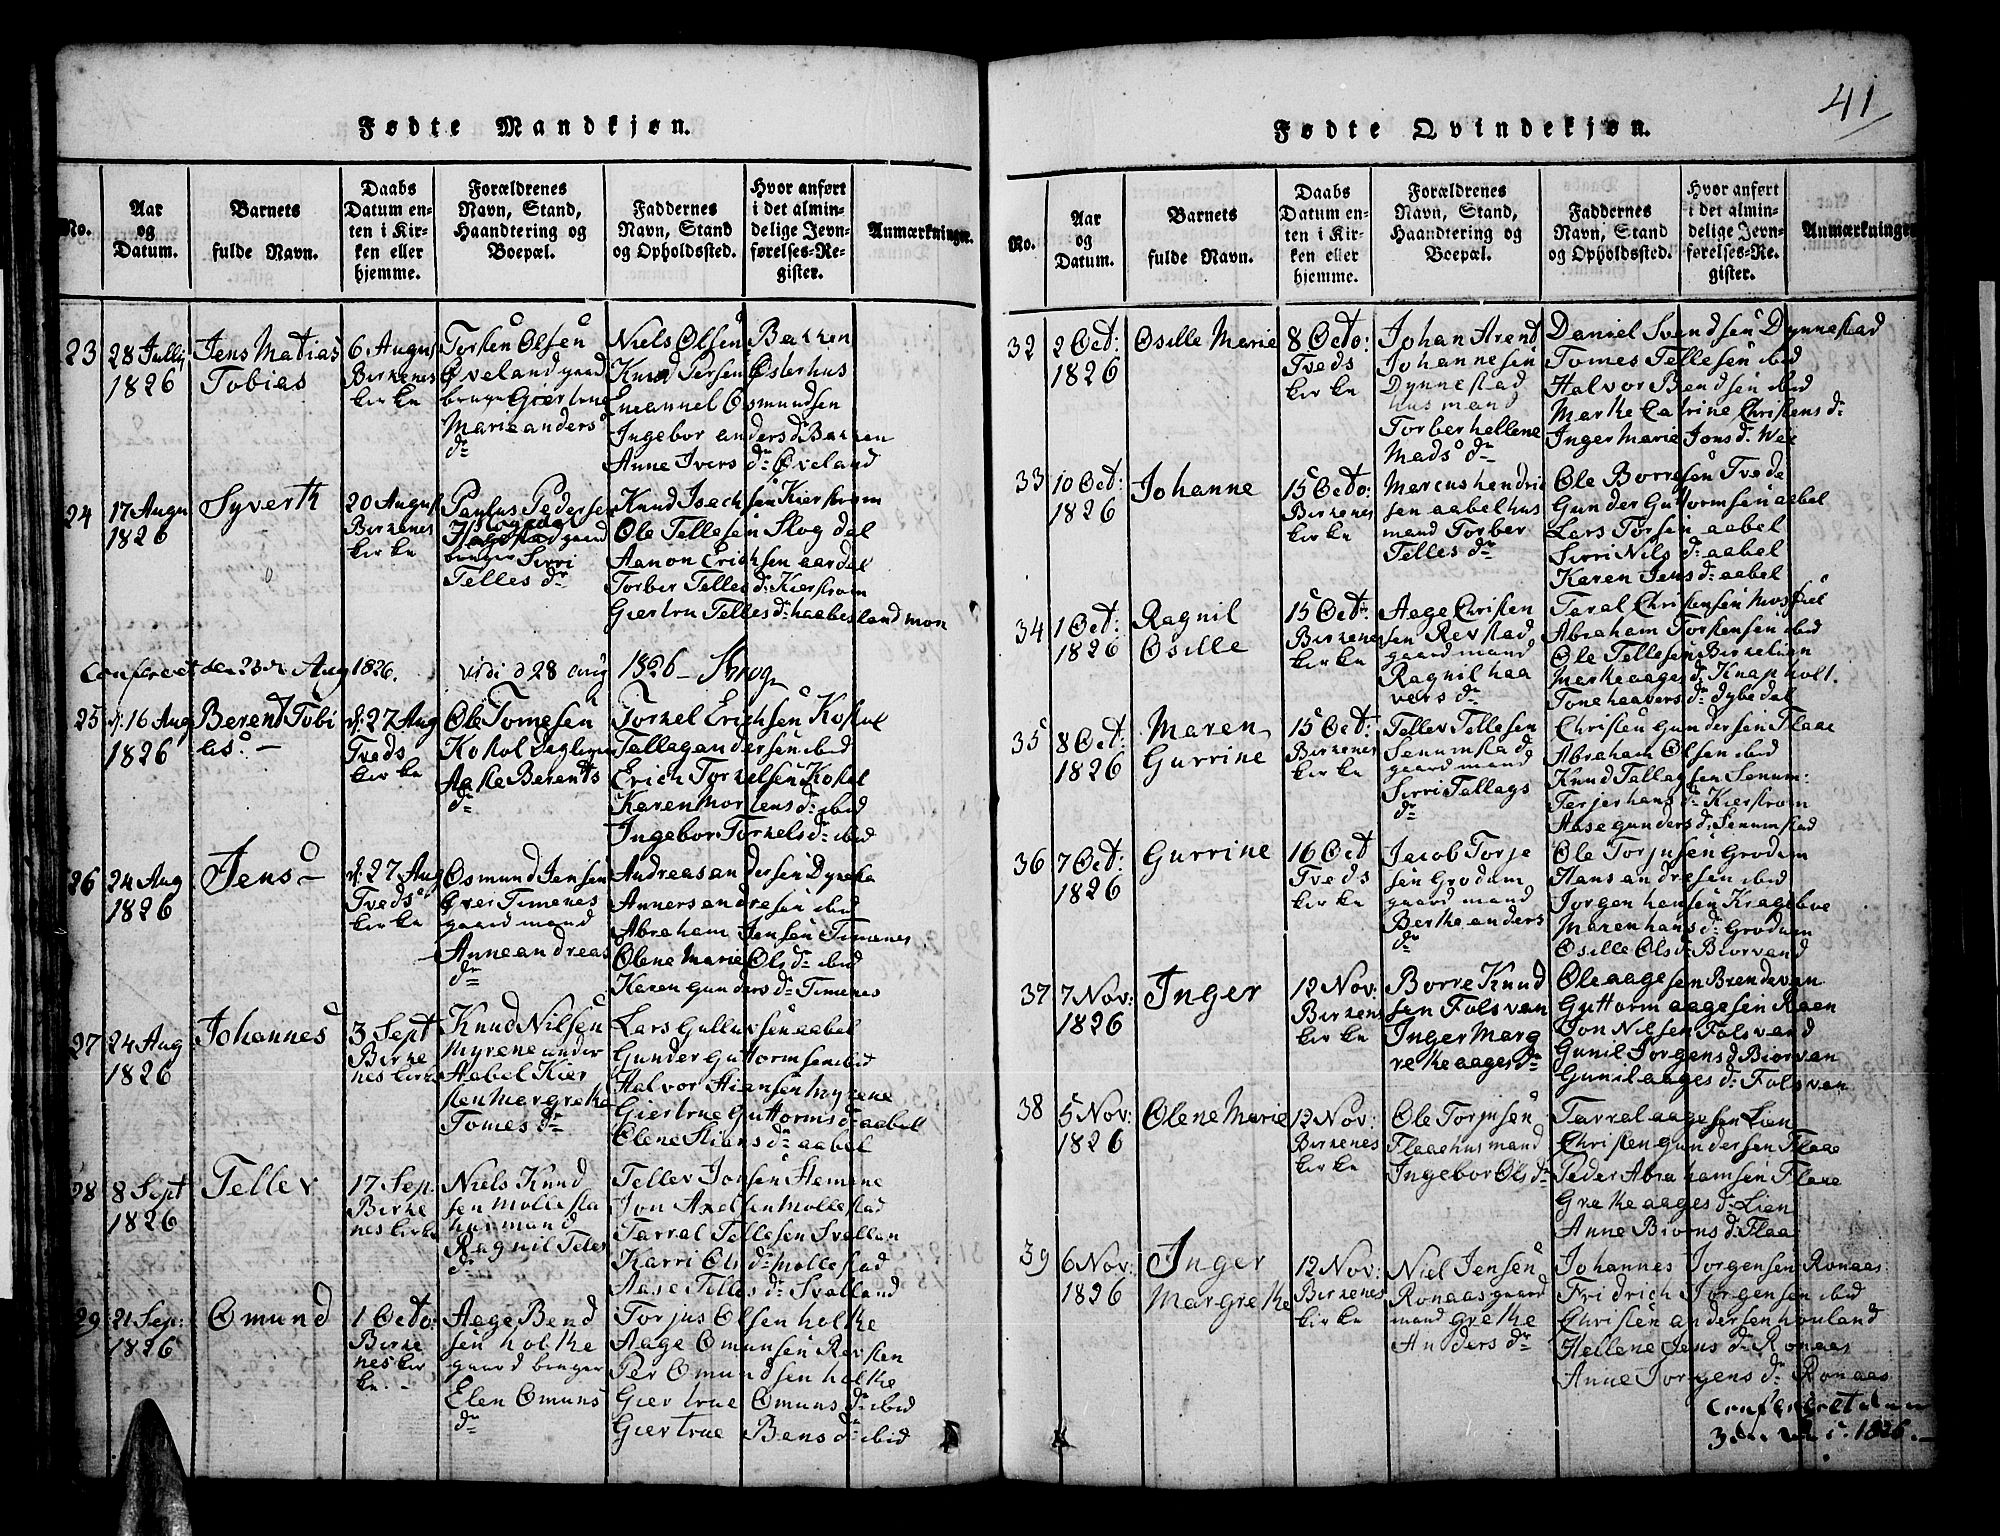 41
Fødte Mandkjøn.
No.
Aar
og
Datum.
Barnets
fulde Navn.
Daabs
Datum en-
ten i Kir-
ken eller
hjemme.
Forældrenes
Navn, Stand,
Haandtering og
Boepæl.
Faddernes
Navn, Stand
og Opholdssted.
Hvor anført
i det almin-
delige Jevn-
førelses-Re-
gister.
Anmærkninger.
23
28 Jully
1826
Jens Matias
Tobias
6 Augus
Birkenes
kirke
Torsten Olsen
Øveland gaard
bruger Giertrue
Marie anders
dr
Niels Olsen Bakken
Knud Tersen Østerhus
Emannel Osmundsen
Ingebor anders dr Bakken
Anne Ivers dr Øveland
24
17 Augu
1826
Syverth
20 Augus
Birkenes
kirke
Paulus Pedersen
gaard
bruger Sirri
Telles dr
Knud Isachsen Kierstrom
Ole Tellesen Skogdal
Aanon Erichsen aardal
Torber Telles dr Kierstrom
Giertru Telles dr haabesland mon
Confereret den 23de Aug 1826. vidi d 28 aug 1826 – Krog
25
d. 16 Aug
1826
Berent Tobi
as. –
d. 27 Aug
Tveds
kirke
Ole Tomesen
Kokol
Aaske Berents
dr
Torkel Erichsen Kokol
Tallag andersen ibid
Erich Torkelsen Kokol
Karen Mortens dr ibid
Ingebor Torkels dr ibid
26
24 Aug
1826
Jens –
d. 27 Aug
Tveds
kirke
Osmund Jensen
Øver Timenes
gaard mand
Anne andreas
dr
Andreas andersen Dyneka
Anners andresen ibid
Abraham Jensen Timenes
Olene Marie Ols dr ibid
Karen gunders dr Timenes
27
24 Aug
1826
Johannes
3 Sept
Birke
nes kirke
Knud Nilsen
Myrene under
Aabel Kier
sten Margrethe
Tomes dr
Lars Gullussen aabel
Gunder Guttormsen ibid
Halvor Stiansen Myrene
Giertrue Guttorms dr aabel
Olene Stians dr aabel
28
8 Sept
1826
Tellev
17 Sep.
Birke
nes kirke
Niels Knud
sen Mollesta
husmand
Ragnil Teles
dr
Tellev Jonsen Hemene
Jon Axelsen Mollestad
Tarral Tellesen Svalland
Karri Ols dr Mollestad
Aase Telles dr Svalland
29
21 Sep:
1826
Omund
1 Octo:
Birke
nes kir
ke. –
Aage Bend
sen holthe
gaard bruger
Elen Omuns
dr
Torjus Olsen holthe
Aage Omunsen Revsten
Per Omundsen holthe
Giertrue Omuns dr ibid
Giertrue Bens dr ibid
Fødte Qvindekjøn.
No.
Aar
og
Datum.
Barnets
fulde Navn.
Daabs
Datum en-
ten i Kir-
ken eller
hjemme.
Forældrenes
Navn, Stand,
Haandtering og
Boepæl.
Faddernes
Navn, Stand
og Opholdssted.
Hvor anført
i det almin-
delige Jevn-
førelses-Re-
gister.
Anmærkninger
32
2 Oct:
1826
Osille Marie
8 Octo:
Tveds
kirke
Johan Arent
Johannesen
Dynnestad
husmand
Torber hellene
Mads dr
Daniel Svendsen Dynnestad
Tomes Tellesen ibid
Halvor Bendsen ibid
Marthe Catrine Christens dr
Inger Marie Jons dr Wee
33
10 Oct:
1826
Johanne
15 Octo:
Birkenes
kirke
Marcus hendric
sen aabel hus
mand Torber
Telles dr
Ole Borresen Tvede
Gunder Guttormsen aabel
Lars Torsen aabel
Sirri Nils dr aabel
Karen Jens dr aabel
34
1 Oct:
1826
Ragnil
Osille
15 Octo
Birkenes
kirke
Aage Christen
sen Revstad
gaard mand
Ragnil haa
vers dr
Taral Christensen
Abraham Torstensen ibid
Ole Tellesen Birkelien
Merthe aages dr Knapholt.
Tone haavers dr Dybedal
35
8 Oct:
1826
Maren
Gurrine
15 Oct:
Birkenes
kirke
Tellev Tellesen
Senumstad
gaard mand
Sirri Tallags
dr
Christen Gundersen Flaae
Abraham Olsen ibid
Knud Tallagsen Senum:
Terjer hans dr Kierstrom
Aase gunders dr Senumstad
36
7 Oct:
1826
Gurrine
16 Oct
Tveds
kirke
Jacob Torje
sen Grodum
gaard mand
Berthe anders
dr
Ole Torjusen Grodum
Hans andresen ibid
Jorgen hansen Kragebve
Maren hans dr Grodum
Osille Ols dr Biorvand
37
7 Nov:
1826
Inger
12 Nov:
Birkenes
kirke
Borre Knud
sen Folsvan
Inger Marg
rethe aages dr
Ole aagesen Brendevan
Guttorm aagesen Raen
Jon Nilsen Folsvand
Gunil Jorgens dr Biorvan
Gunil aages dr Folsvan
38
5 Nov:
1826
Olene Marie
12 Nov:
Birkenes
kirke
Ole Torjusen
Flaae husmand
Ingebor Ols dr
Tarral aagesen Lien
Christen gundersen Flaae
Peder Abrahamsen Flaae
Grethe aages dr Lien
Anne Biorns dr Flaae
39
6 Nov:
1826
Inger
Margrethe
12 Nov:
Birkenes
kirke
Niel Jensen
Ronaas gaard
mand grethe
Anders dr
Johannes Jorgensen Ronaas
Fridrich Jorgensen ibid
Christen andersen houland
Hellene Jens dr Ronaas
Anne Jorgens dr Ronaas
Confereret den
1826. –